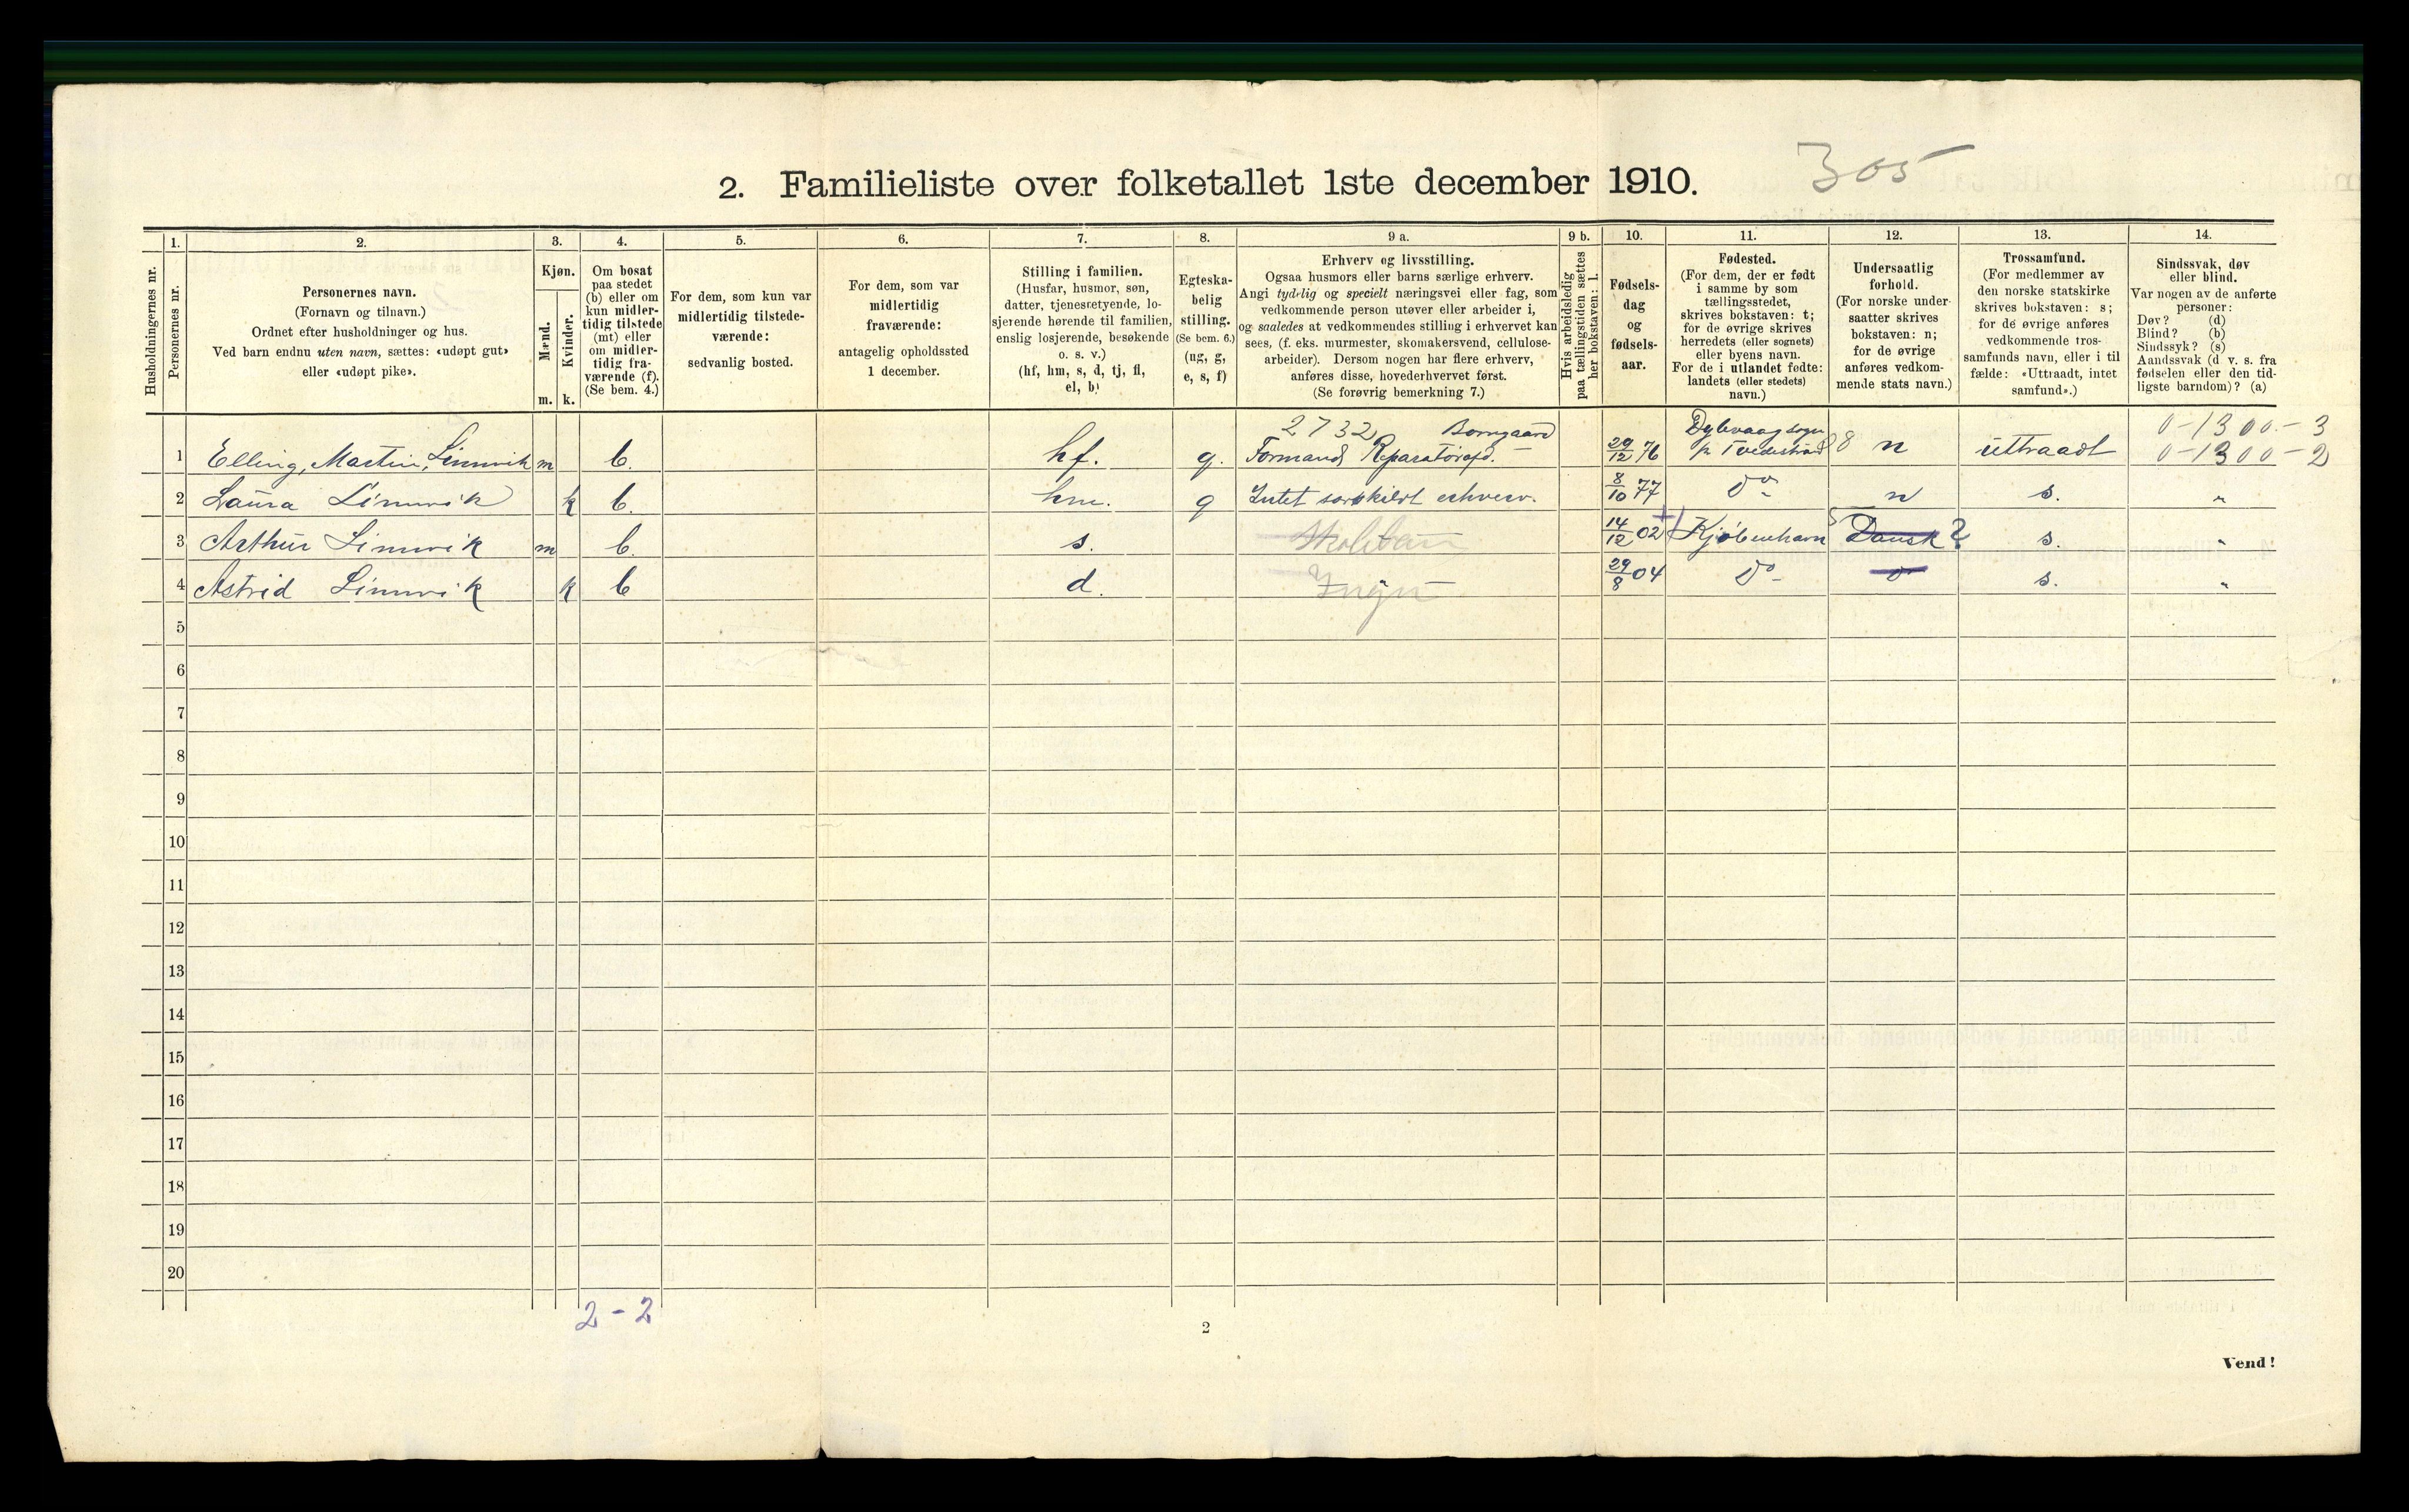 305
2. Familieliste over folketallet 1ste december 1910.
Husholdningernes nr.
1. Personernes nr.
2.
Personernes navn.
(Fornavn og tilnavn.)
Ordnet efter husholdninger og hus.
Ved barn endnu uten navn, sættes: «udøpt gut»
eller «udøpt pike».
3.
Kjøn.
Mænd.
Kvinder.
m. k.
4.
Om bosat
paa stedet
(b) eller om
kun midler-
tidig tilstede
(mt) eller
om midler-
tidig fra-
værende (f).
(Se bem. 4.)
5.
For dem, som kun var
midlertidig tilstede-
værende:
sedvanlig bosted.
6.
For dem, som var
midlertidig
fraværende:
antagelig opholdssted
1 december.
7.
Stilling i familien.
(Husfar, husmor, søn,
datter, tjenestetyende, lo-
sjerende hørende til familien,
enslig losjerende, besøkende
o. s. v.)
(hf, hm, s, d, tj, fl,
el, b)
8.
Egteska-
belig
stilling.
(Se bem. 6.)
(ug, g,
e, s, f)
9 a.
Erhverv og livsstilling.
Ogsaa husmors eller barns særlige erhverv.
Angi tydelig og specielt næringsvei eller fag, som
vedkommende person utøver eller arbeider i,
og saaledes at vedkommendes stilling i erhvervet kan
sees, (f. eks. murmester, skomakersvend, cellulose-
arbeider). Dersom nogen har flere erhverv,
anføres disse, hovederhvervet først.
(Se forøvrig bemerkning 7.)
9 b.
Hvis arbeidsledig
paa tællingstiden sættes
her bokstaven: l.
10.
Fødsels-
dag
og
fødsels-
aar.
11.
Fødested.
(For dem, der er født
i samme by som
tællingsstedet,
skrives bokstaven: t;
for de øvrige skrives
herredets (eller sognets)
eller byens navn.
For de i utlandet fødte:
landets (eller stedets)
navn.)
12.
Undersaatlig
forhold.
(For norske under-
saatter skrives
bokstaven: n;
for de øvrige
anføres vedkom-
mende stats navn.)
13.
Trossamfund.
(For medlemmer av
den norske statskirke
skrives bokstaven: s;
for de øvrige anføres
vedkommende tros-
samfunds navn, eller i til-
fælde: «Uttraadt, intet
samfund».)
14.
Sindssvak, døv
eller blind.
Var nogen av de anførte
personer:
Døv? (d)
Blind? (b)
Sindssyk? (s)
Aandssvak (d. v. s. fra
fødselen eller den tid-
ligste barndom)? (a)
2732 Dybvaag sogn 0-1300-3
1 Elling, Martin, Linnvik m b. hf. g. Formand, Reparatørafd. 29/12 76 p Tvedestrand 88 n uttraadt 0-1300-2
2 Laura Linnvik k b. hm. g Intet særskildt erhverv. 8/10 77 Do n s. "
3 Arthur Linnvik m b. s. Skolebarn 14/12 02 Kjöbenhavn Dansk ? s. "
4 Astrid Linnvik k b d. Ingen 29/8 04 Do s. "
5
6
7
8
9
10
11
12
13
14
15
16
17
18
19
20
2-2
2
Vend!